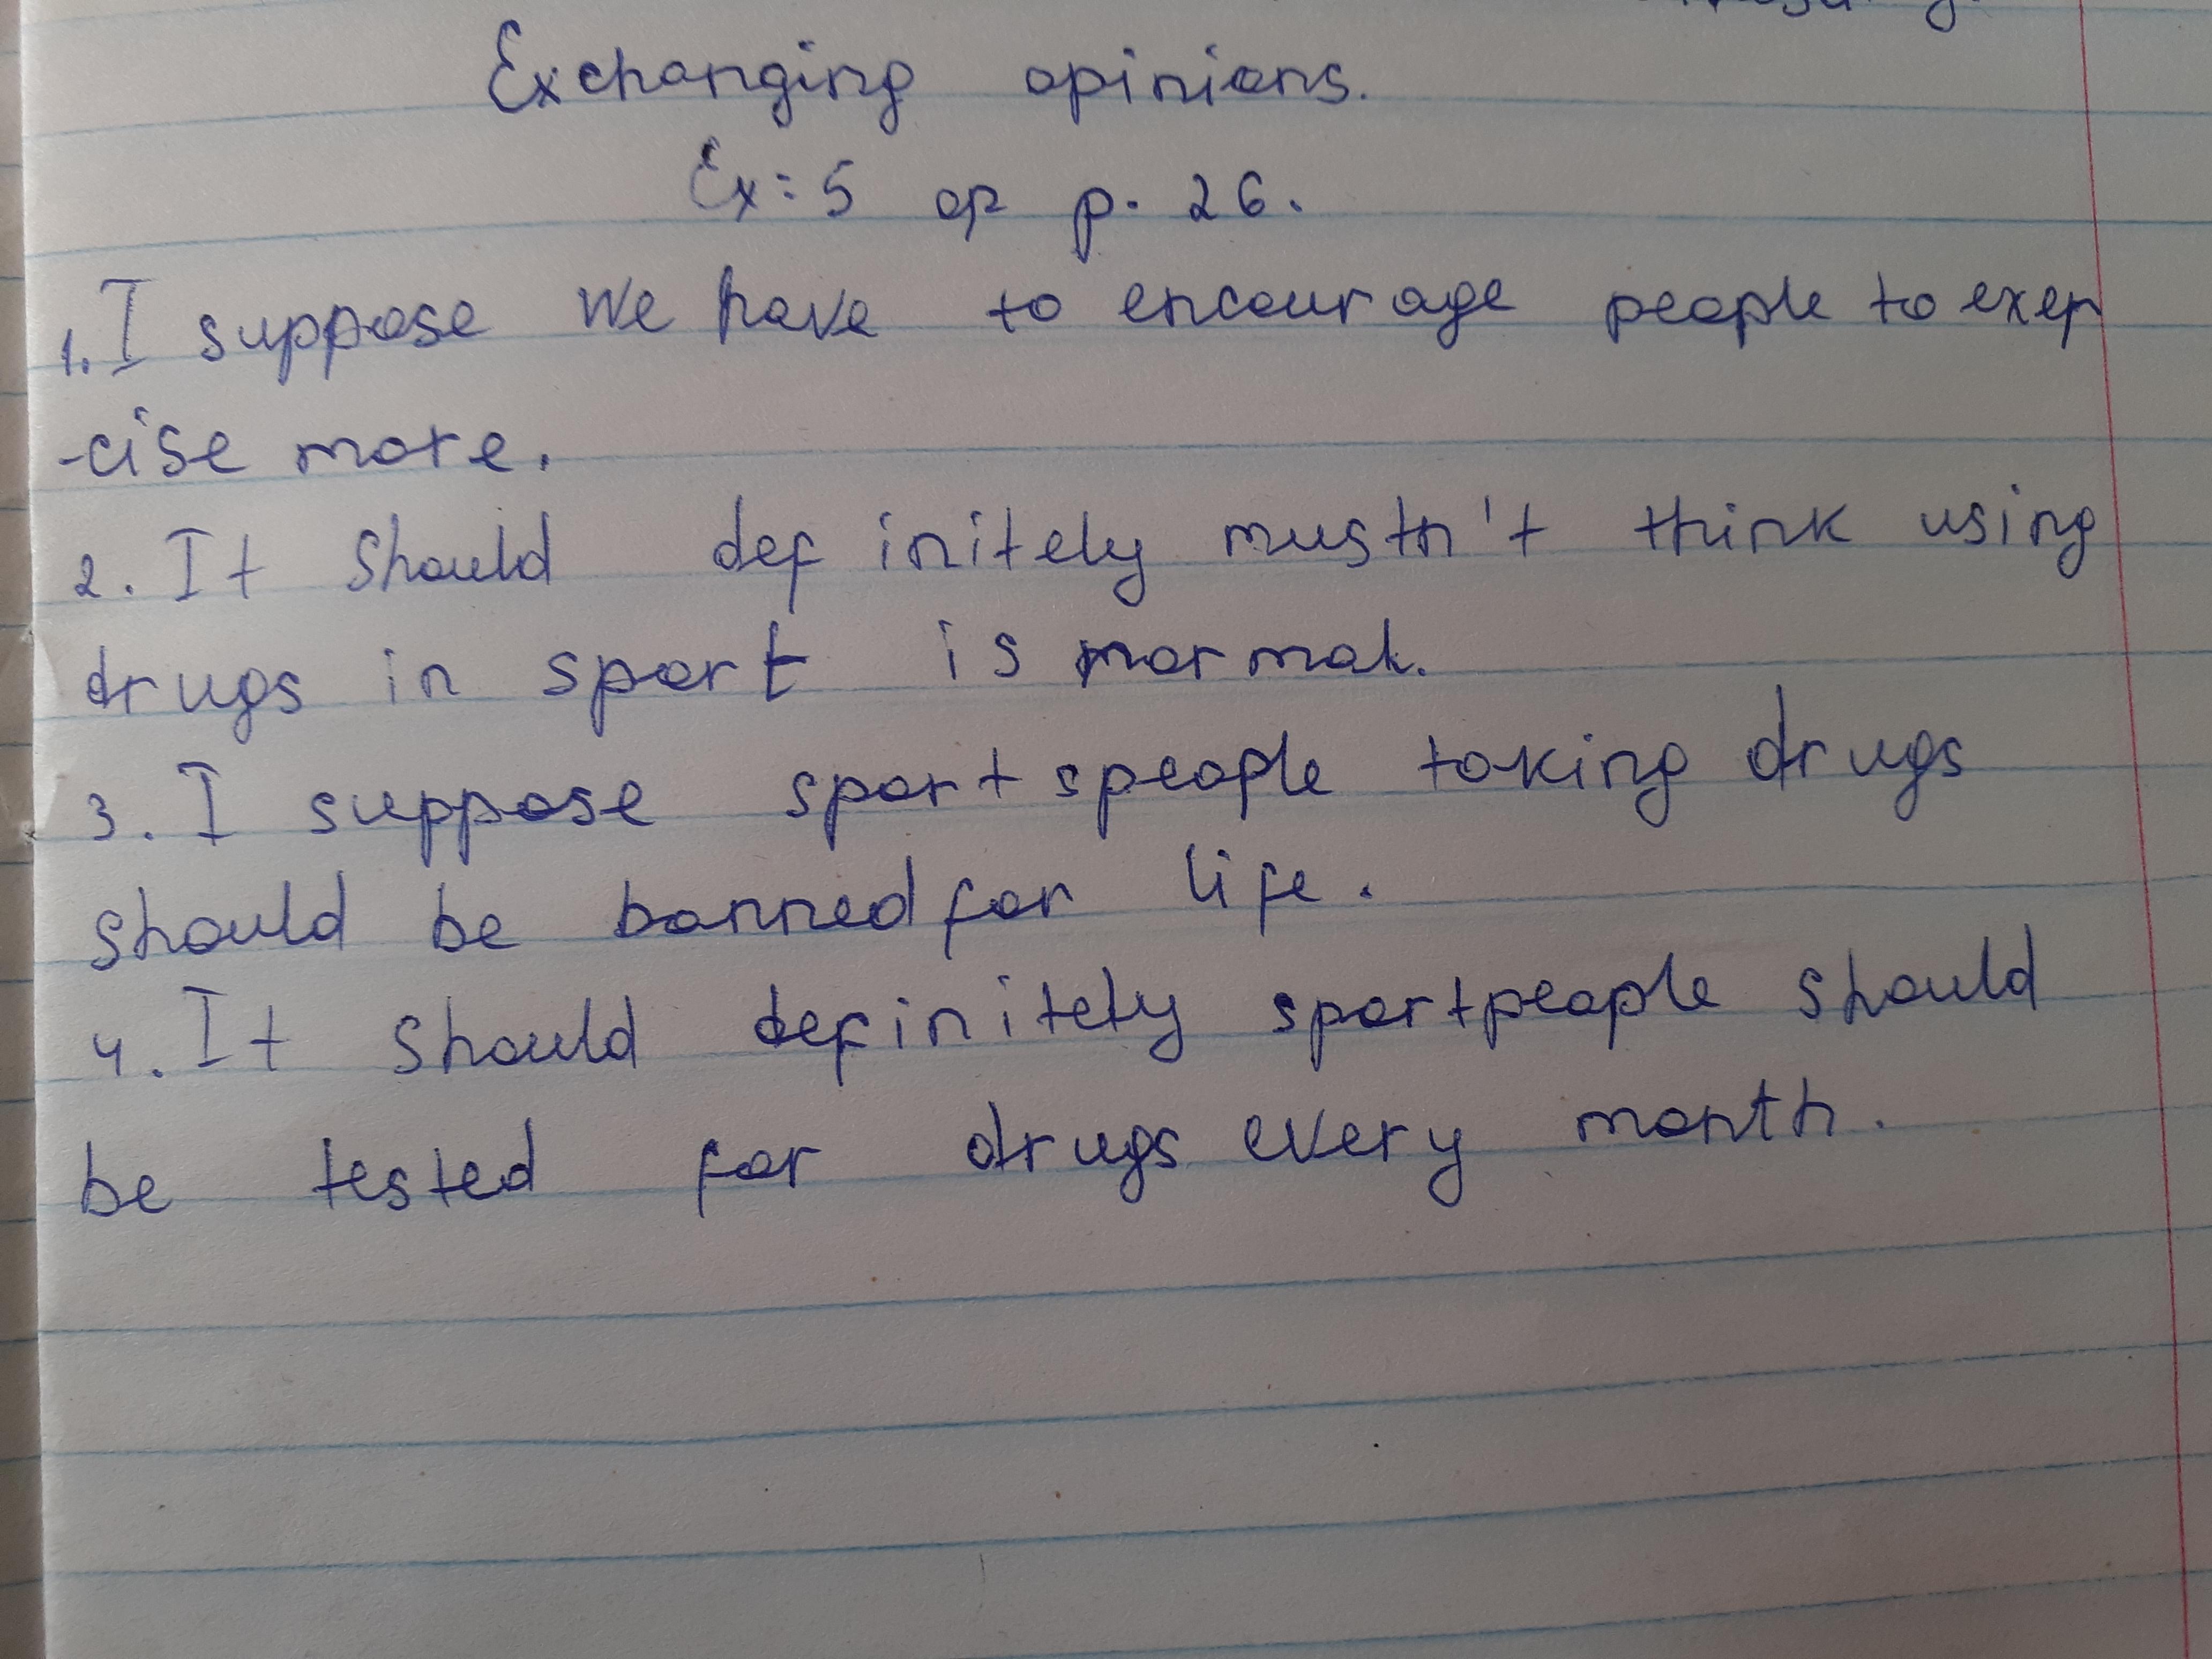 Exchanging opinions.
Ex: 5 op p. 26.
1. I suppose we have to encourage people to exer
-cise more.
2. It should definitely mustn't think using
drugs in sport is normal.
3. I suppose sportspeople taking drugs
should be banned for life.
4. It should definitely sportpeople should
be tested for drugs every month.